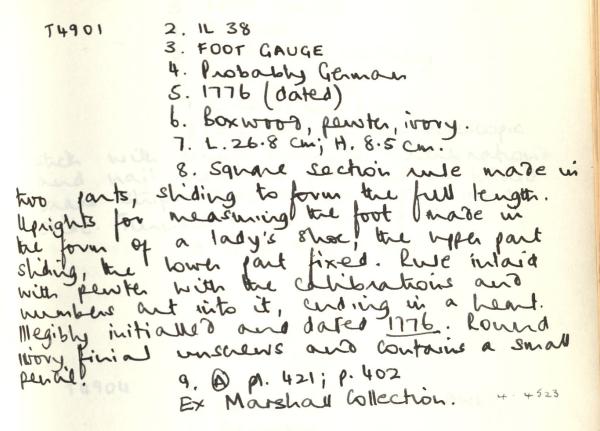 T4901 2. IL 38
3. FOOT GAUGE
4. Probably German
5. 1776 (dated)
6. Boxwood, pewter, ivory.
7. L. 26.8 cm; H. 8.5 cm.
8. Square section rule made in
two parts, sliding to form the full length.
Uprights for measuring the foot made in
the form of a lady's shoe, the upper part
sliding, the lower part fixed. Rule inlaid
with pewter with the calibrations and
numbers cut into it, ending in a heart.
Illegibly initialled and dated 1776. Round
ivory finial unscrews and contains a small
pencil.
9. Ⓐ pl. 421; p. 402
Ex Marshall Collection. 4.4523